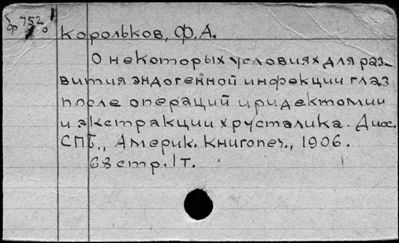 бр 752
Корольков, Ф.А.
О некоторых условиях для раз-
вития эндогенной инфекции глаз
после операций иридектомии
и экстракции хрусталика. Дисс.
СПБ., Америк. Книгопеч., 1906.
68 стр. 1 т.